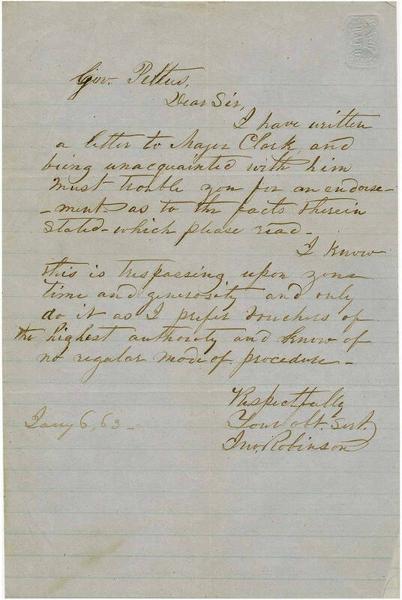 Gov. Pettus,
Dear Sir,
I have written
a letter to Major Clark, and
being unacquainted with him
must trouble you for an endorse-
-ment as to the facts therein
stated - which please read -
I know
this is trespassing upon your
time and generosity and only
do it as I prefer vouchers of
the highest authority and know of
no regular mode of procedure -
Respectfully
Your obt. Servt.
Jno. Robinson
Jany 6, 63 -